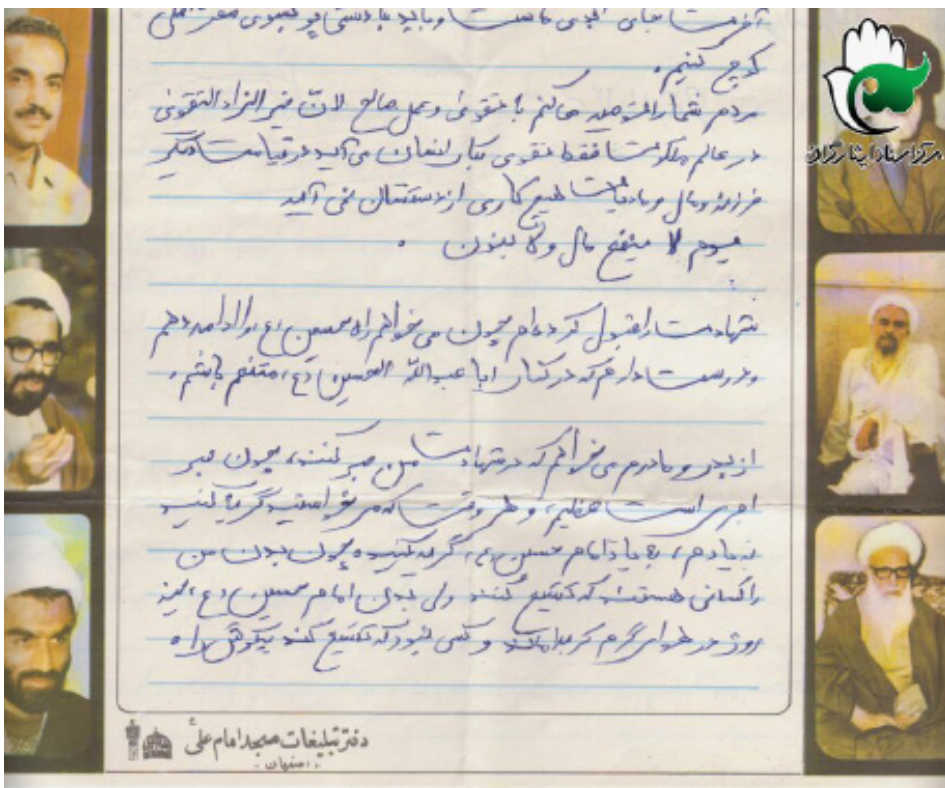 آخرت جای ابدی ماست و باید با دستی پر بسوی معراج
کوچ کنیم.
مردم شما را توصیه میکنم با تقوی و عمل صالح لان خیر الزاد التقوی
در عالم ملکوت فقط تقوی بکار انسان می‌آید در قیامت دیگر
فرزند و مال و مادیات هیچ کاری از دستشان نمی آید
یوم لا ینفع مال ولا بنون .
شهادت را قبول کرده‌ام چون می خواهم راه حسین (ع) را ادامه دهم
و دوست دارم که در کنار ابا عبدالله الحسین (ع) متنعم باشم.
از پدر و مادرم می خواهم که در شهادت من صبر کنند، چون صبر
اجری است عظیم، و هر وقت که می خواستید گریه کنید
به یادم، به یاد امام حسین (ع) گریه کنید چون بدن من
را کسانی هستند که تشییع کنند ولی بدن امام حسین (ع)
روز در هوای گرم کربلا ماند و کسی نبود که تشییع کند
دفتر تبلیغات مسجد امام علی
اصفهان
مرکز اسناد ایثارگران